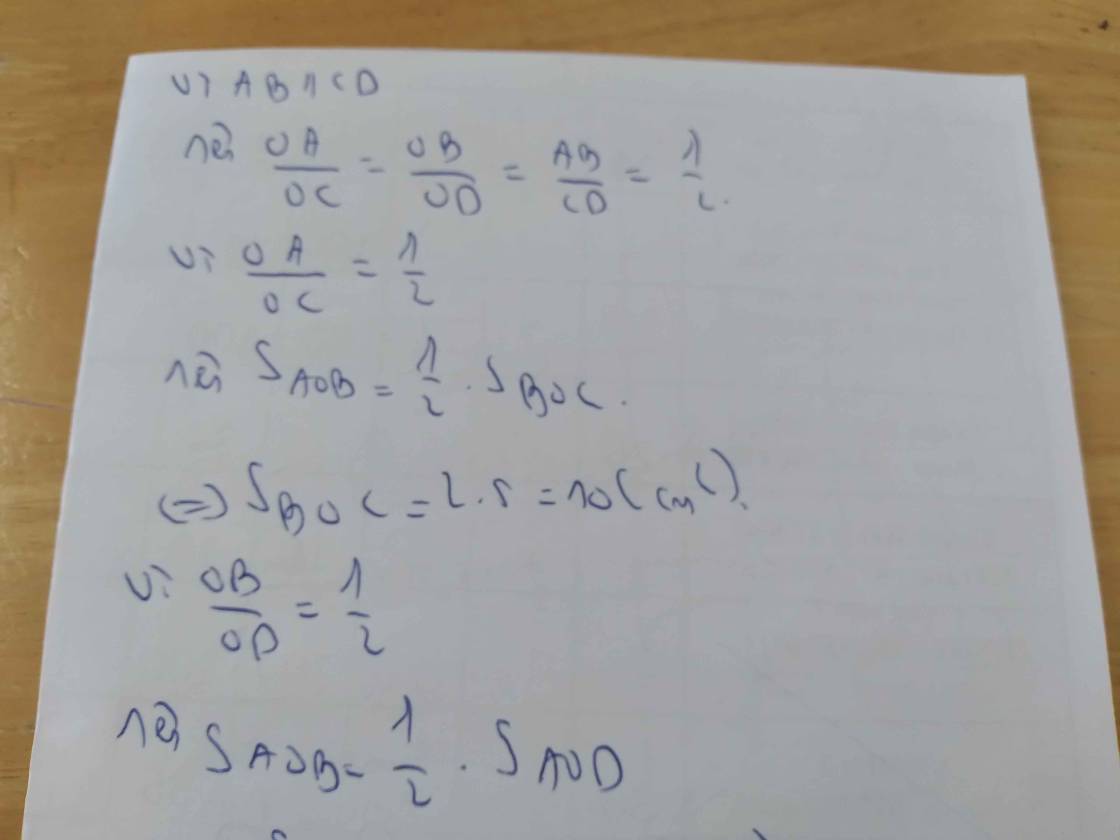 Vì AB // CD
nên OA/OC = OB/OD = AB/CD = 1/2.
Vì OA/OC = 1/2
nên S AOB = 1/2 . S BOC.
<=> S BOC = 2.5 = 10 (cm²).
Vì OB/OD = 1/2
nên S AOB = 1/2 . S AOD